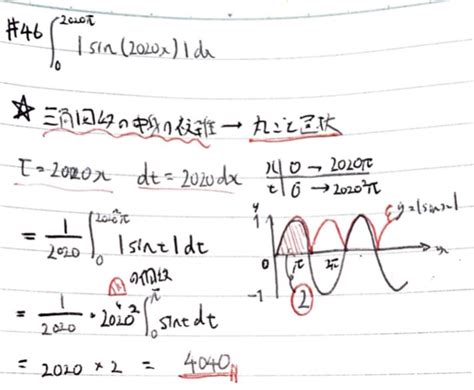 #46 ∫₀^{2020π} |sin(2020x)|dx
☆ 三角関数の中身の複雑 → 丸ごと置換
t=2020x dt=2020dx x|0 → 2020π
t|0 → 2020²π
= 1/2020 ∫₀^{2020²π} |sint|dt
の個数
= 1/2020 · 2020² ∫₀^π sint dt
= 2020 × 2 = 4040
y
1
y=|sinx|
0 π 2π x
-1
2